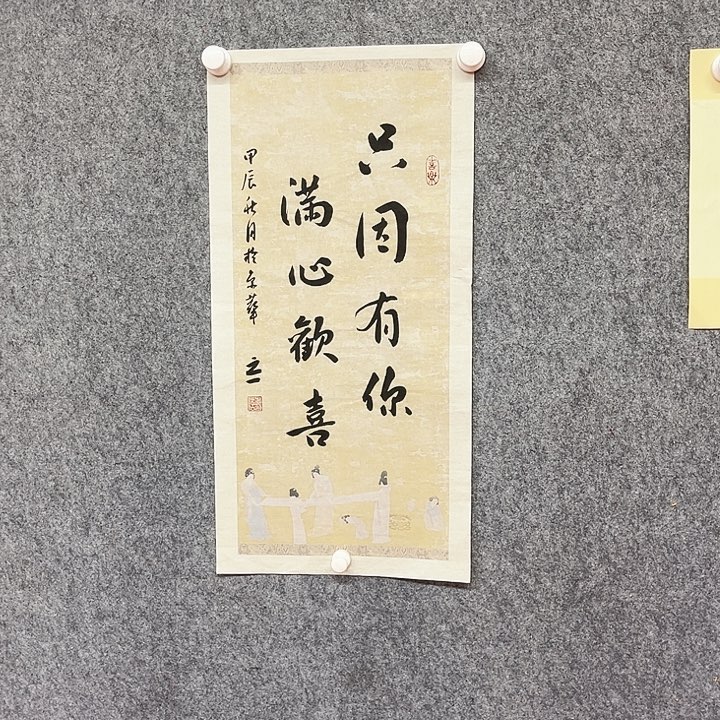 只因有你
满心歡喜
甲辰秋月於京華 立一